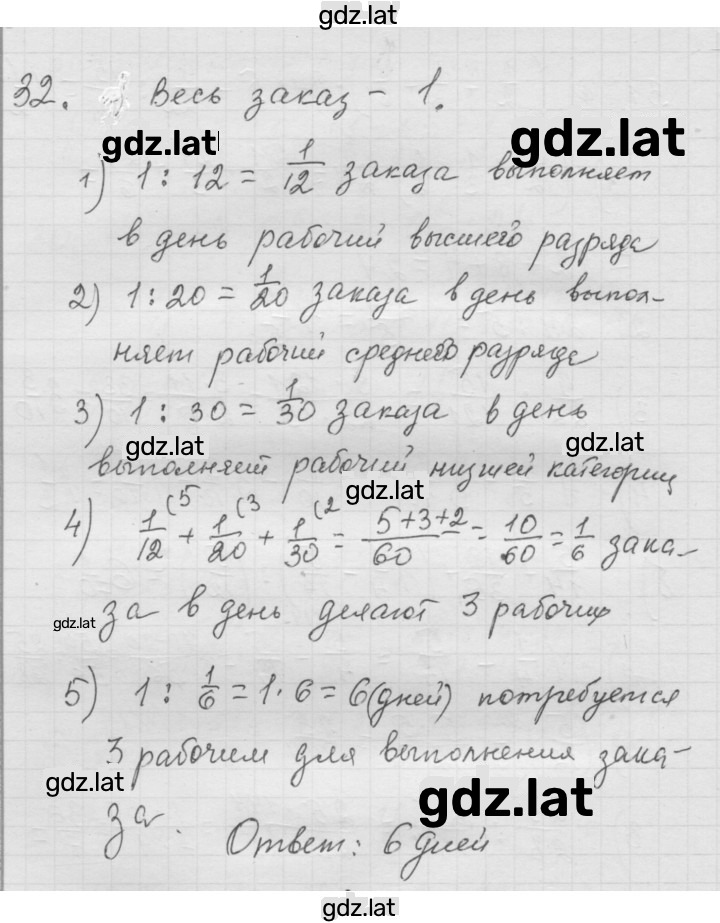 gdz.lat
32. Весь заказ - 1.
gdz.lat
gdz.lat
1) 1 : 12 = 1/12 заказа выполняет
в день рабочий высшего разряда
2) 1 : 20 = 1/20 заказа в день выпол-
няет рабочий среднего разряда
3) 1 : 30 = 1/30 заказа в день
gdz.lat
gdz.lat
выполняет рабочий низшей категории
gdz.lat
4) 1/12 (5 + 1/20 (3 + 1/30 (2 = 5+3+2/60 = 10/60 = 1/6 зака-
gdz.lat
за в день делают 3 рабочих
5) 1 : 1/6 = 1 · 6 = 6 (дней) потребуется
3 рабочим для выполнения зака-
gdz.lat
gdz.lat
за.
Ответ: 6 дней
gdz.lat